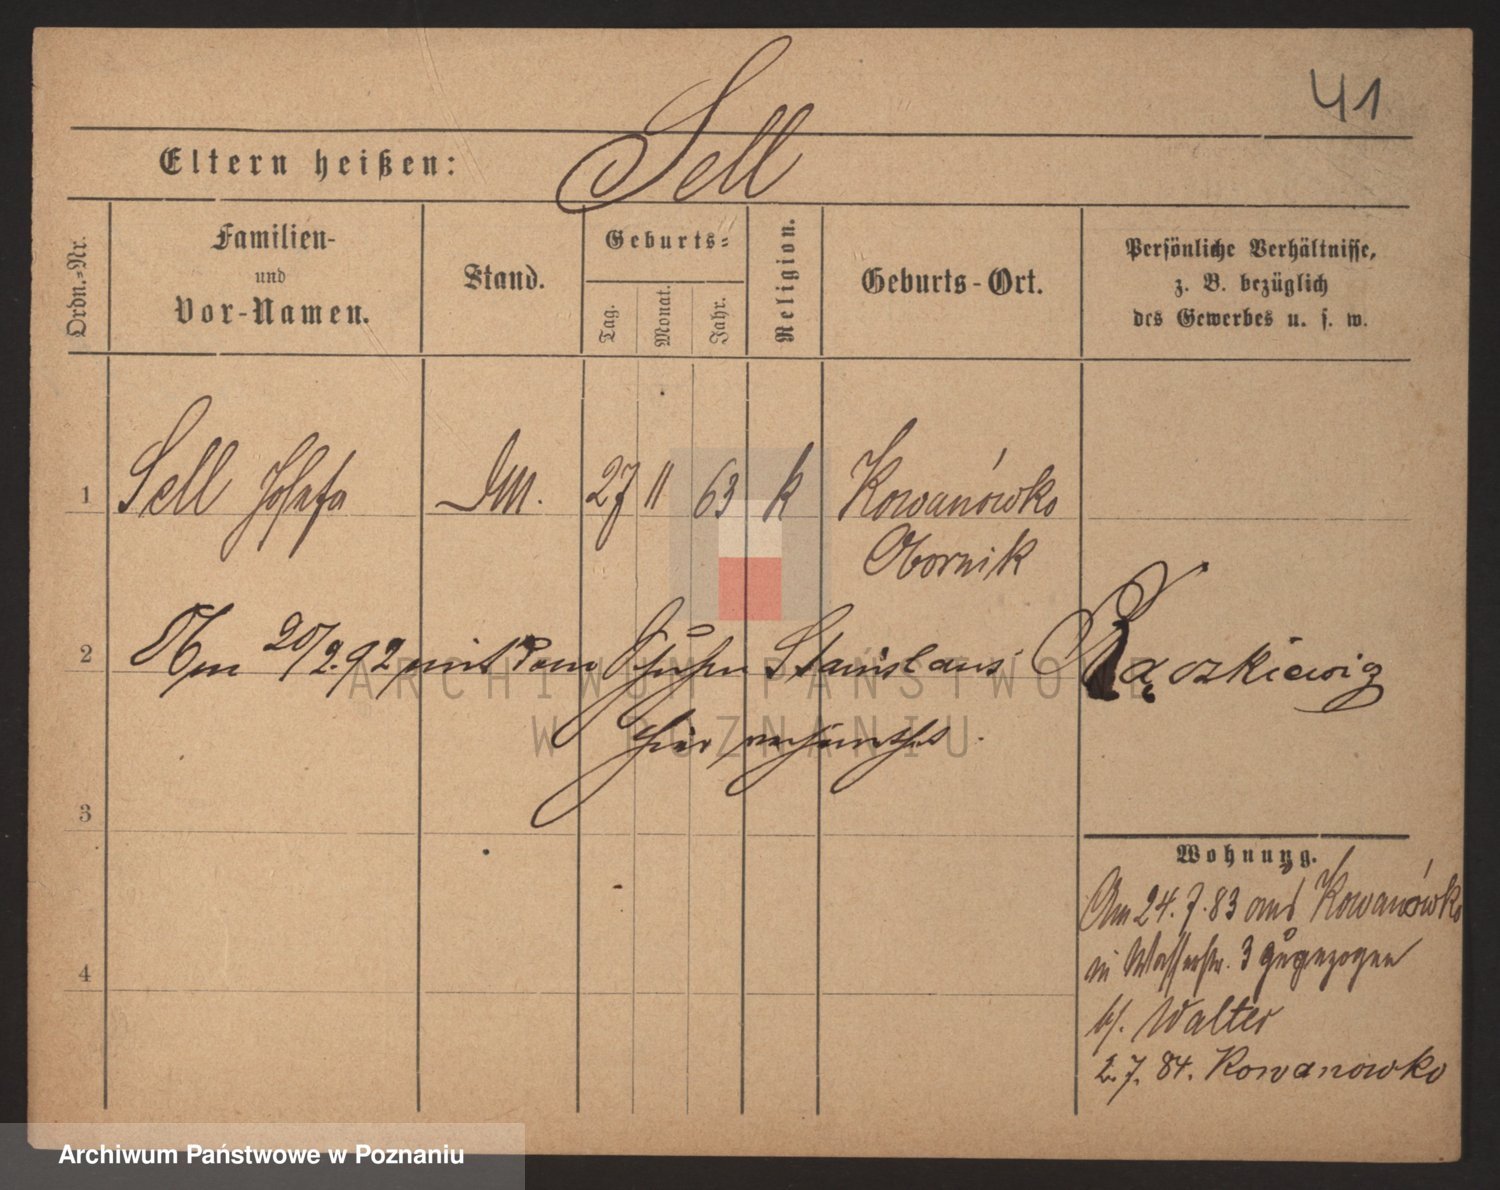 41
Sell
Eltern heißen:
Ordn.-Nr.
Familien-
und
Vor-Namen.
Stand.
Geburts-
Tag.
Monat.
Jahr.
Religion.
Geburts-Ort.
Persönliche Verhältnisse,
z. B. bezüglich
des Gewerbes u. s. w.
1 Sell Josefa 27 11 63 k Kowanówko
Obornik
2 20/2.92 mit dem Stanislaus Rączkiewiz
hier verheirathet.
3
4
Wohnung.
Am 24.7.83 aus Kowanówko
in Wasserstr. 3 zugezogen
b/. Walter
2.7.84. Kowanowko
ARCHIWUM PAŃSTWOWE
W POZNANIU
Archiwum Państwowe w Poznaniu